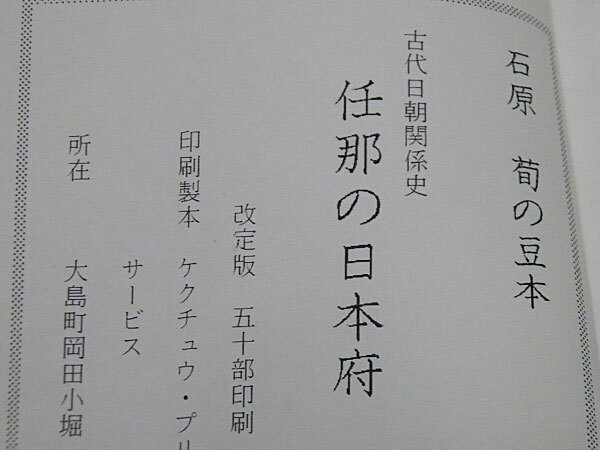 石原 荀の豆本
古代日朝関係史
任那の日本府
改定版 五十部印刷
印刷製本 ケクチュウ・プリ
サービス
所在 大島町岡田小堀